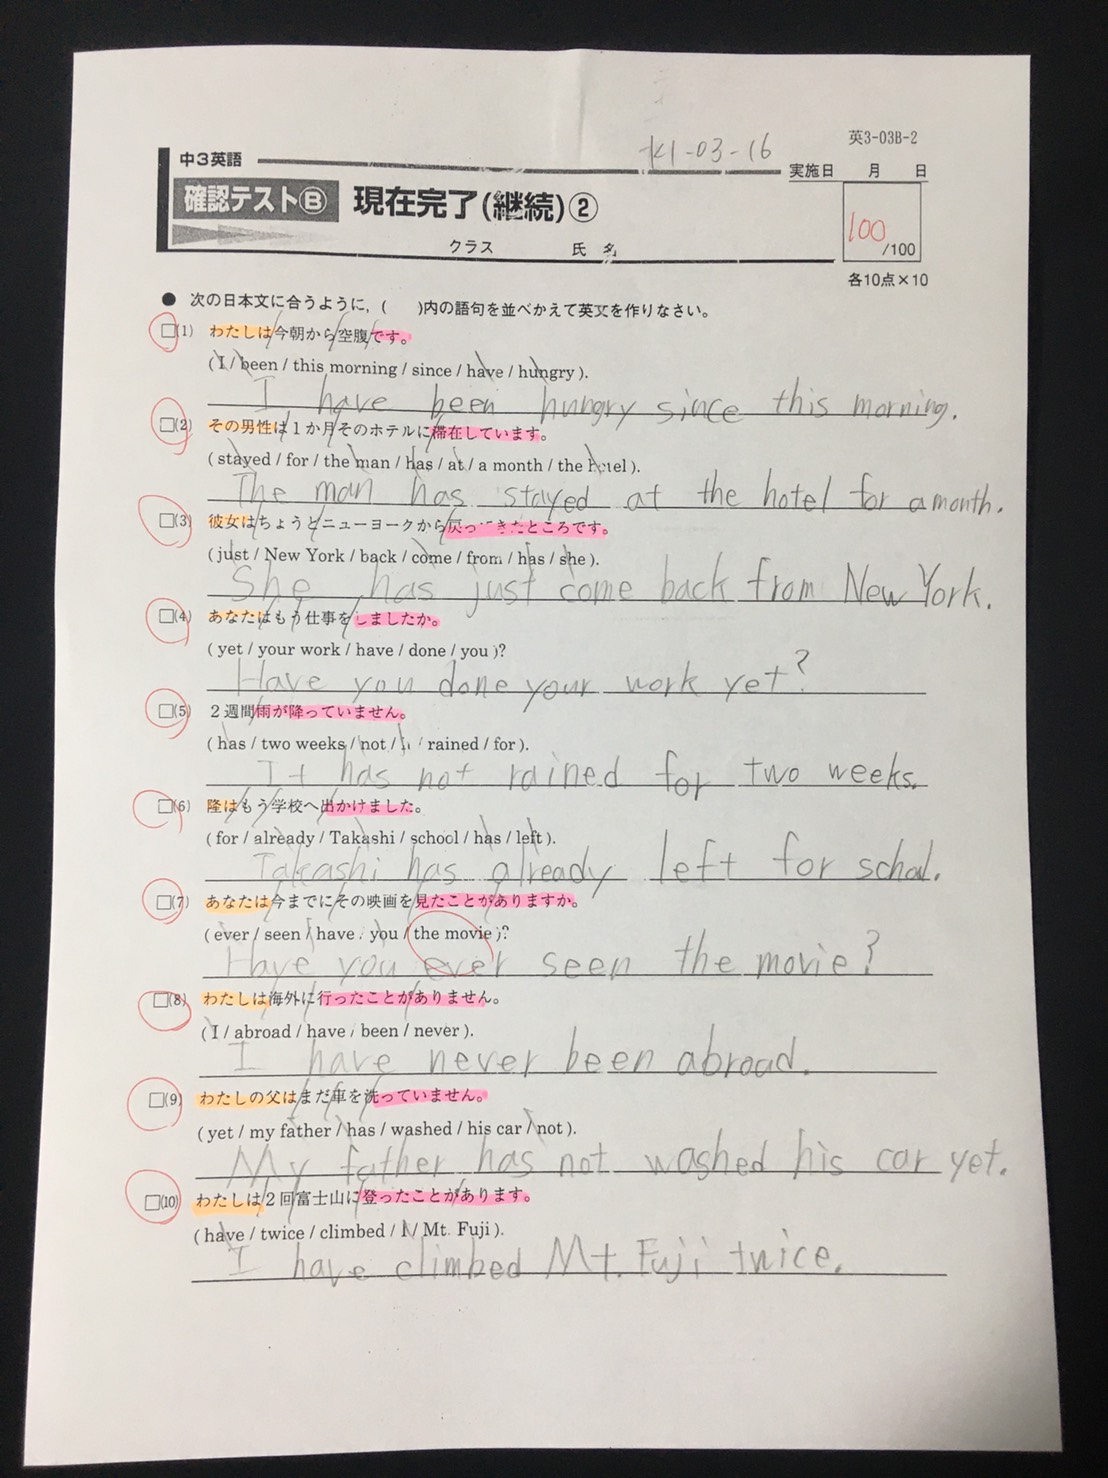 英3-03B-2
K1-03-16
中3英語
実施日 月 日
確認テストⒷ 現在完了(継続)②
100/100
クラス 氏名
各10点×10
● 次の日本文に合うように,( )内の語句を並べかえて英文を作りなさい。
□(1) わたしは今朝から空腹です。
( I / been / this morning / since / have / hungry ).
I have been hungry since this morning.
□(2) その男性は1か月そのホテルに滞在しています。
( stayed / for / the man / has / at / a month / the hotel ).
The man has stayed at the hotel for a month.
□(3) 彼女はちょうどニューヨークから戻ってきたところです。
( just / New York / back / come / from / has / she ).
She has just come back from New York.
□(4) あなたはもう仕事をしましたか。
( yet / your work / have / done / you )?
Have you done your work yet?
□(5) 2週間雨が降っていません。
( has / two weeks / not / / rained / for ).
It has not rained for two weeks.
□(6) 隆はもう学校へ出かけました。
( for / already / Takashi / school / has / left ).
Takashi has already left for schal.
□(7) あなたは今までにその映画を見たことがありますか。
( ever / seen / have / you / the movie )?
Have you ever seen the movie?
□(8) わたしは海外に行ったことがありません。
( I / abroad / have / been / never ).
I have never been abroad.
□(9) わたしの父はまだ車を洗っていません。
( yet / my father / has / washed / his car / not ).
My father has not washed his car yet.
□(10) わたしは2回富士山に登ったことがあります。
( have / twice / climbed / I / Mt. Fuji ).
I have climbed Mt. Fuji twice.